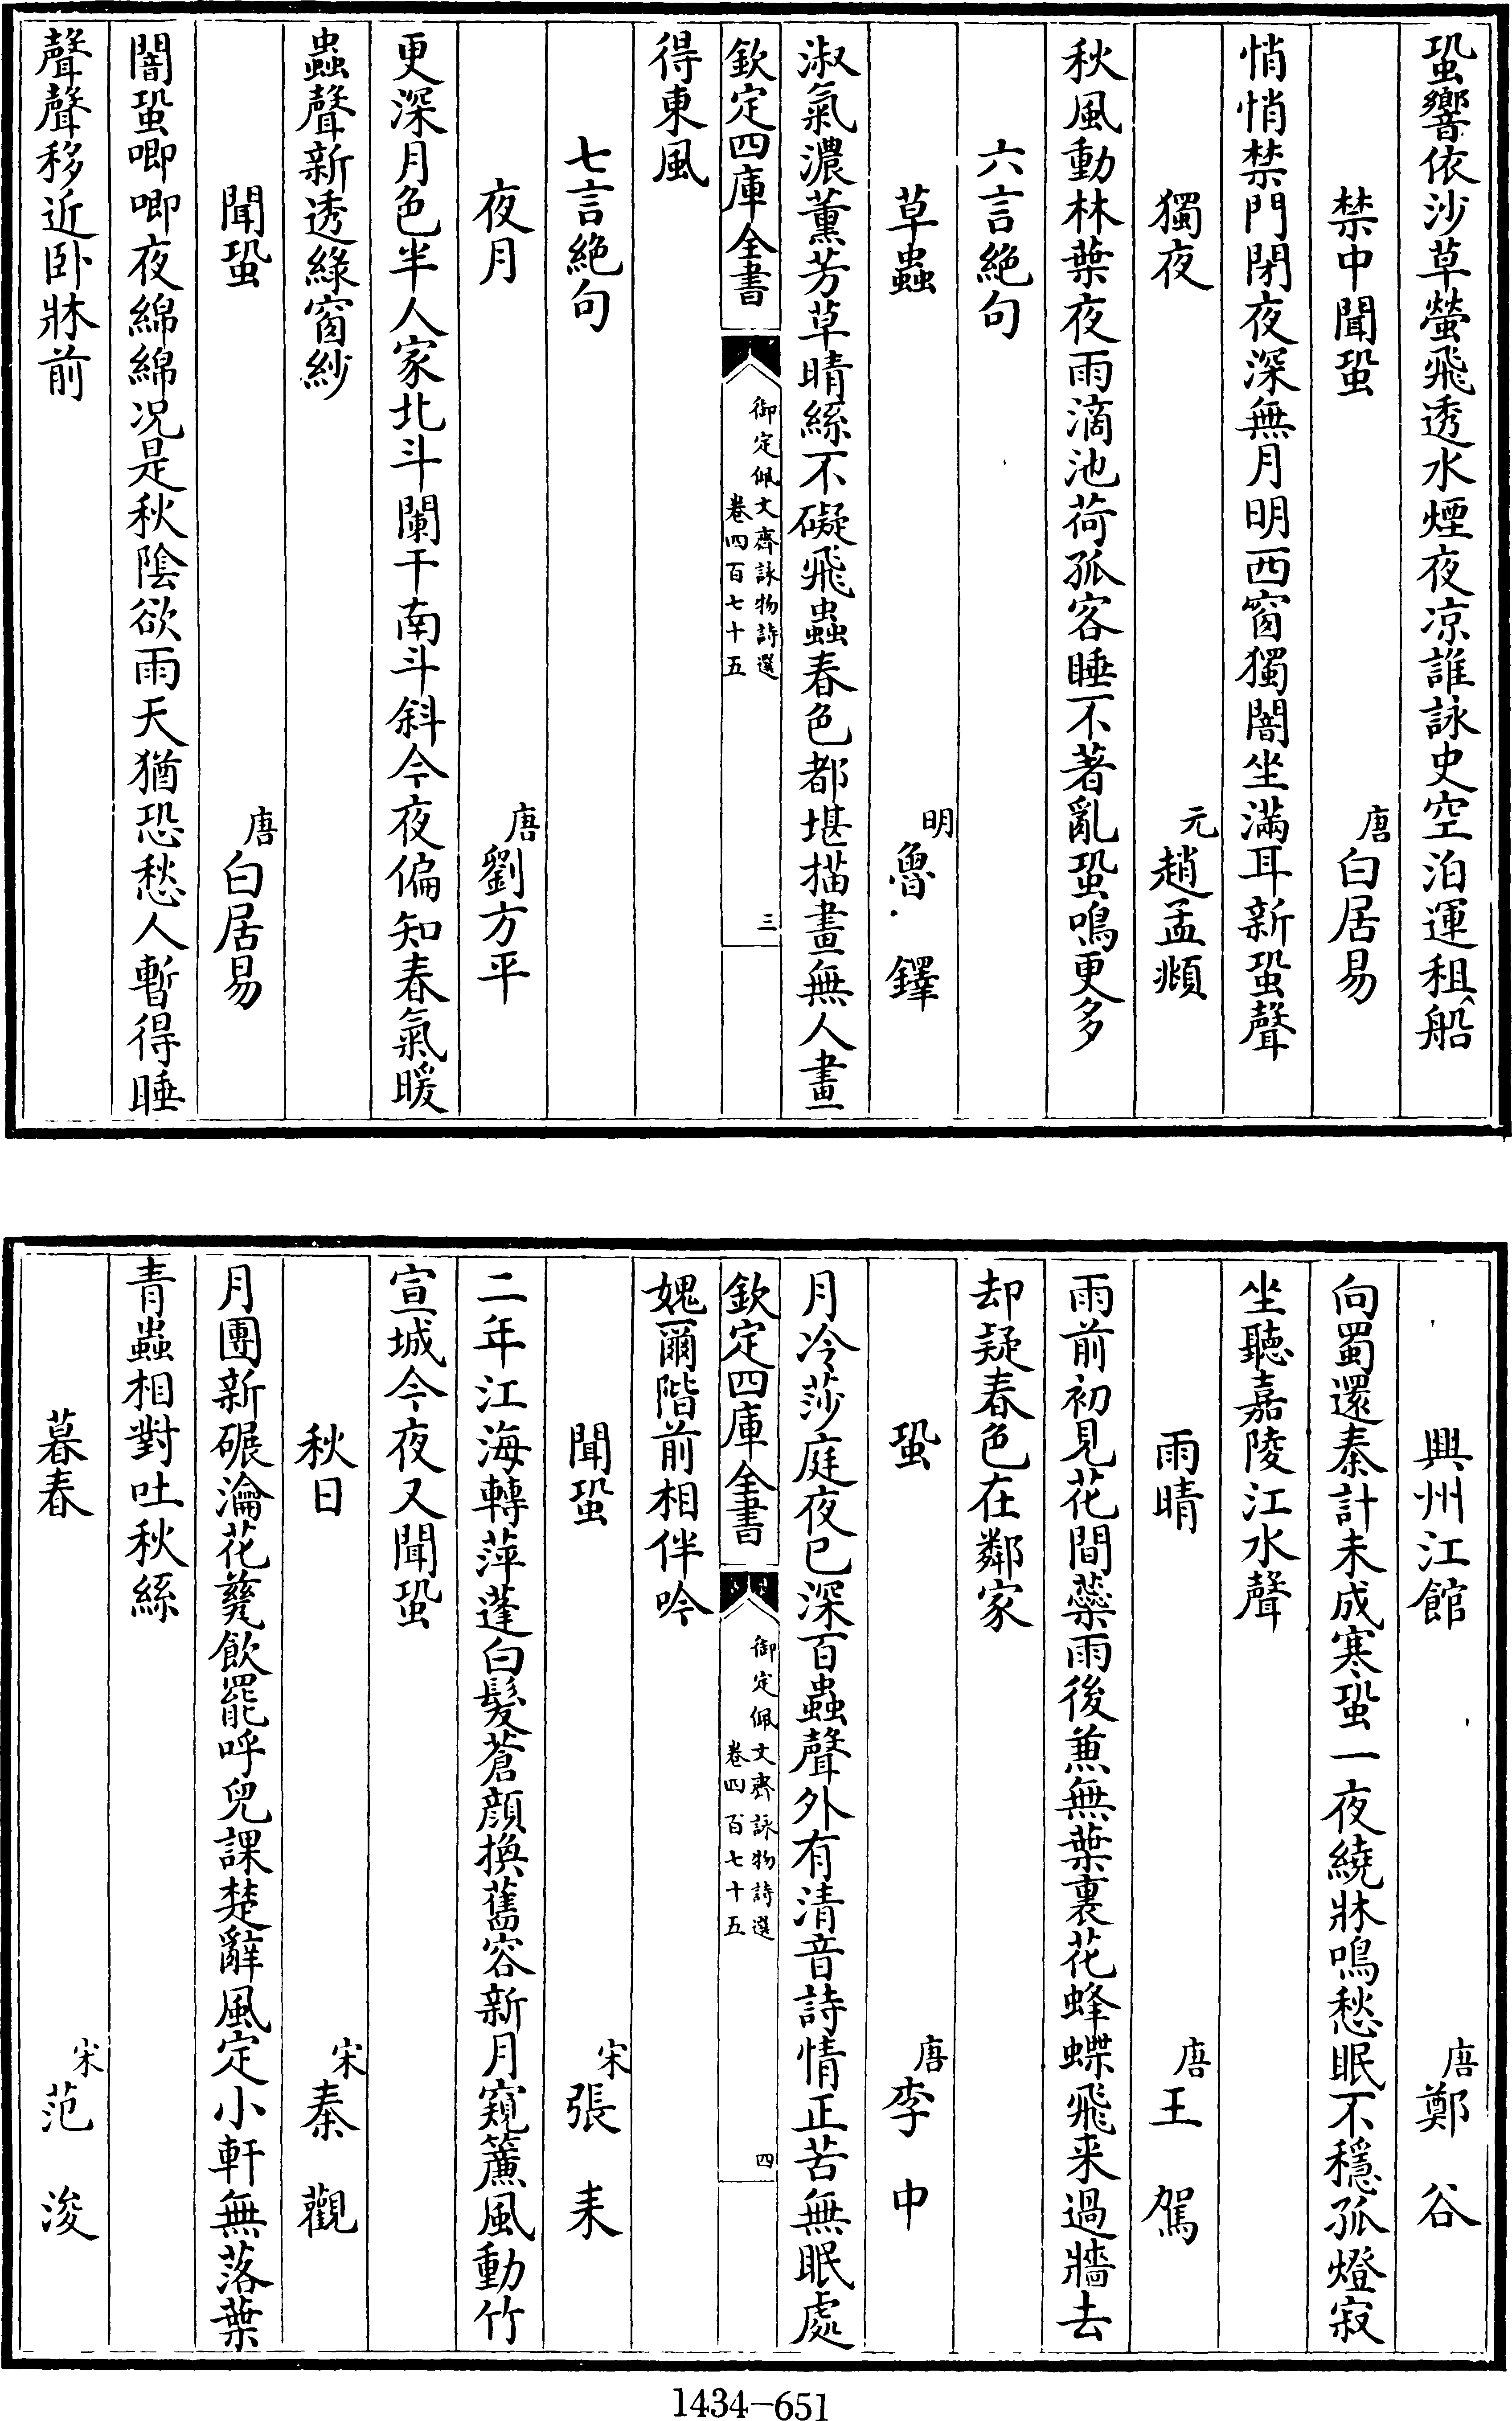 蛩響依沙草螢飛透水煙夜凉誰詠史空泊運租船
禁中聞蛩　唐白居易
悄悄禁門閉夜深無月明西窗獨闇坐滿耳新蛩聲
獨夜　元趙孟頫
秋風動林葉夜雨滴池荷孤客睡不著亂蛩鳴更多
六言絶句
草蟲　明魯鐸
淑氣濃薰芳草晴絲不礙飛蟲春色都堪描畫無人畫
欽定四庫全書　御定佩文齋詠物詩選卷四百七十五　三
得東風
七言絶句
夜月　唐劉方平
更深月色半人家北斗闌干南斗斜今夜偏知春氣暖
蟲聲新透綠窗紗
聞蛩　唐白居易
闇蛩唧唧夜綿綿况是秋陰欲雨天猶恐愁人暫得睡
聲聲移近卧牀前
興州江館　唐鄭谷
向蜀還秦計未成寒蛩一夜繞牀鳴愁眠不穩孤燈寂
坐聽嘉陵江水聲
雨晴　唐王駕
雨前初見花間蘂雨後兼無葉裏花蜂蝶飛来過牆去
却疑春色在鄰家
蛩　唐李中
月冷莎庭夜已深百蟲聲外有清音詩情正苦無眠處
欽定四庫全書　御定佩文齋詠物詩選卷四百七十五　四
媿爾階前相伴吟
聞蛩　宋張耒
二年江海轉萍蓬白髮蒼顔換舊容新月窺簾風動竹
宣城今夜又聞蛩
秋日　宋秦觀
月團新碾瀹花甆飲罷呼兒課楚辭風定小軒無落葉
青蟲相對吐秋絲
暮春　宋范浚
1434-651